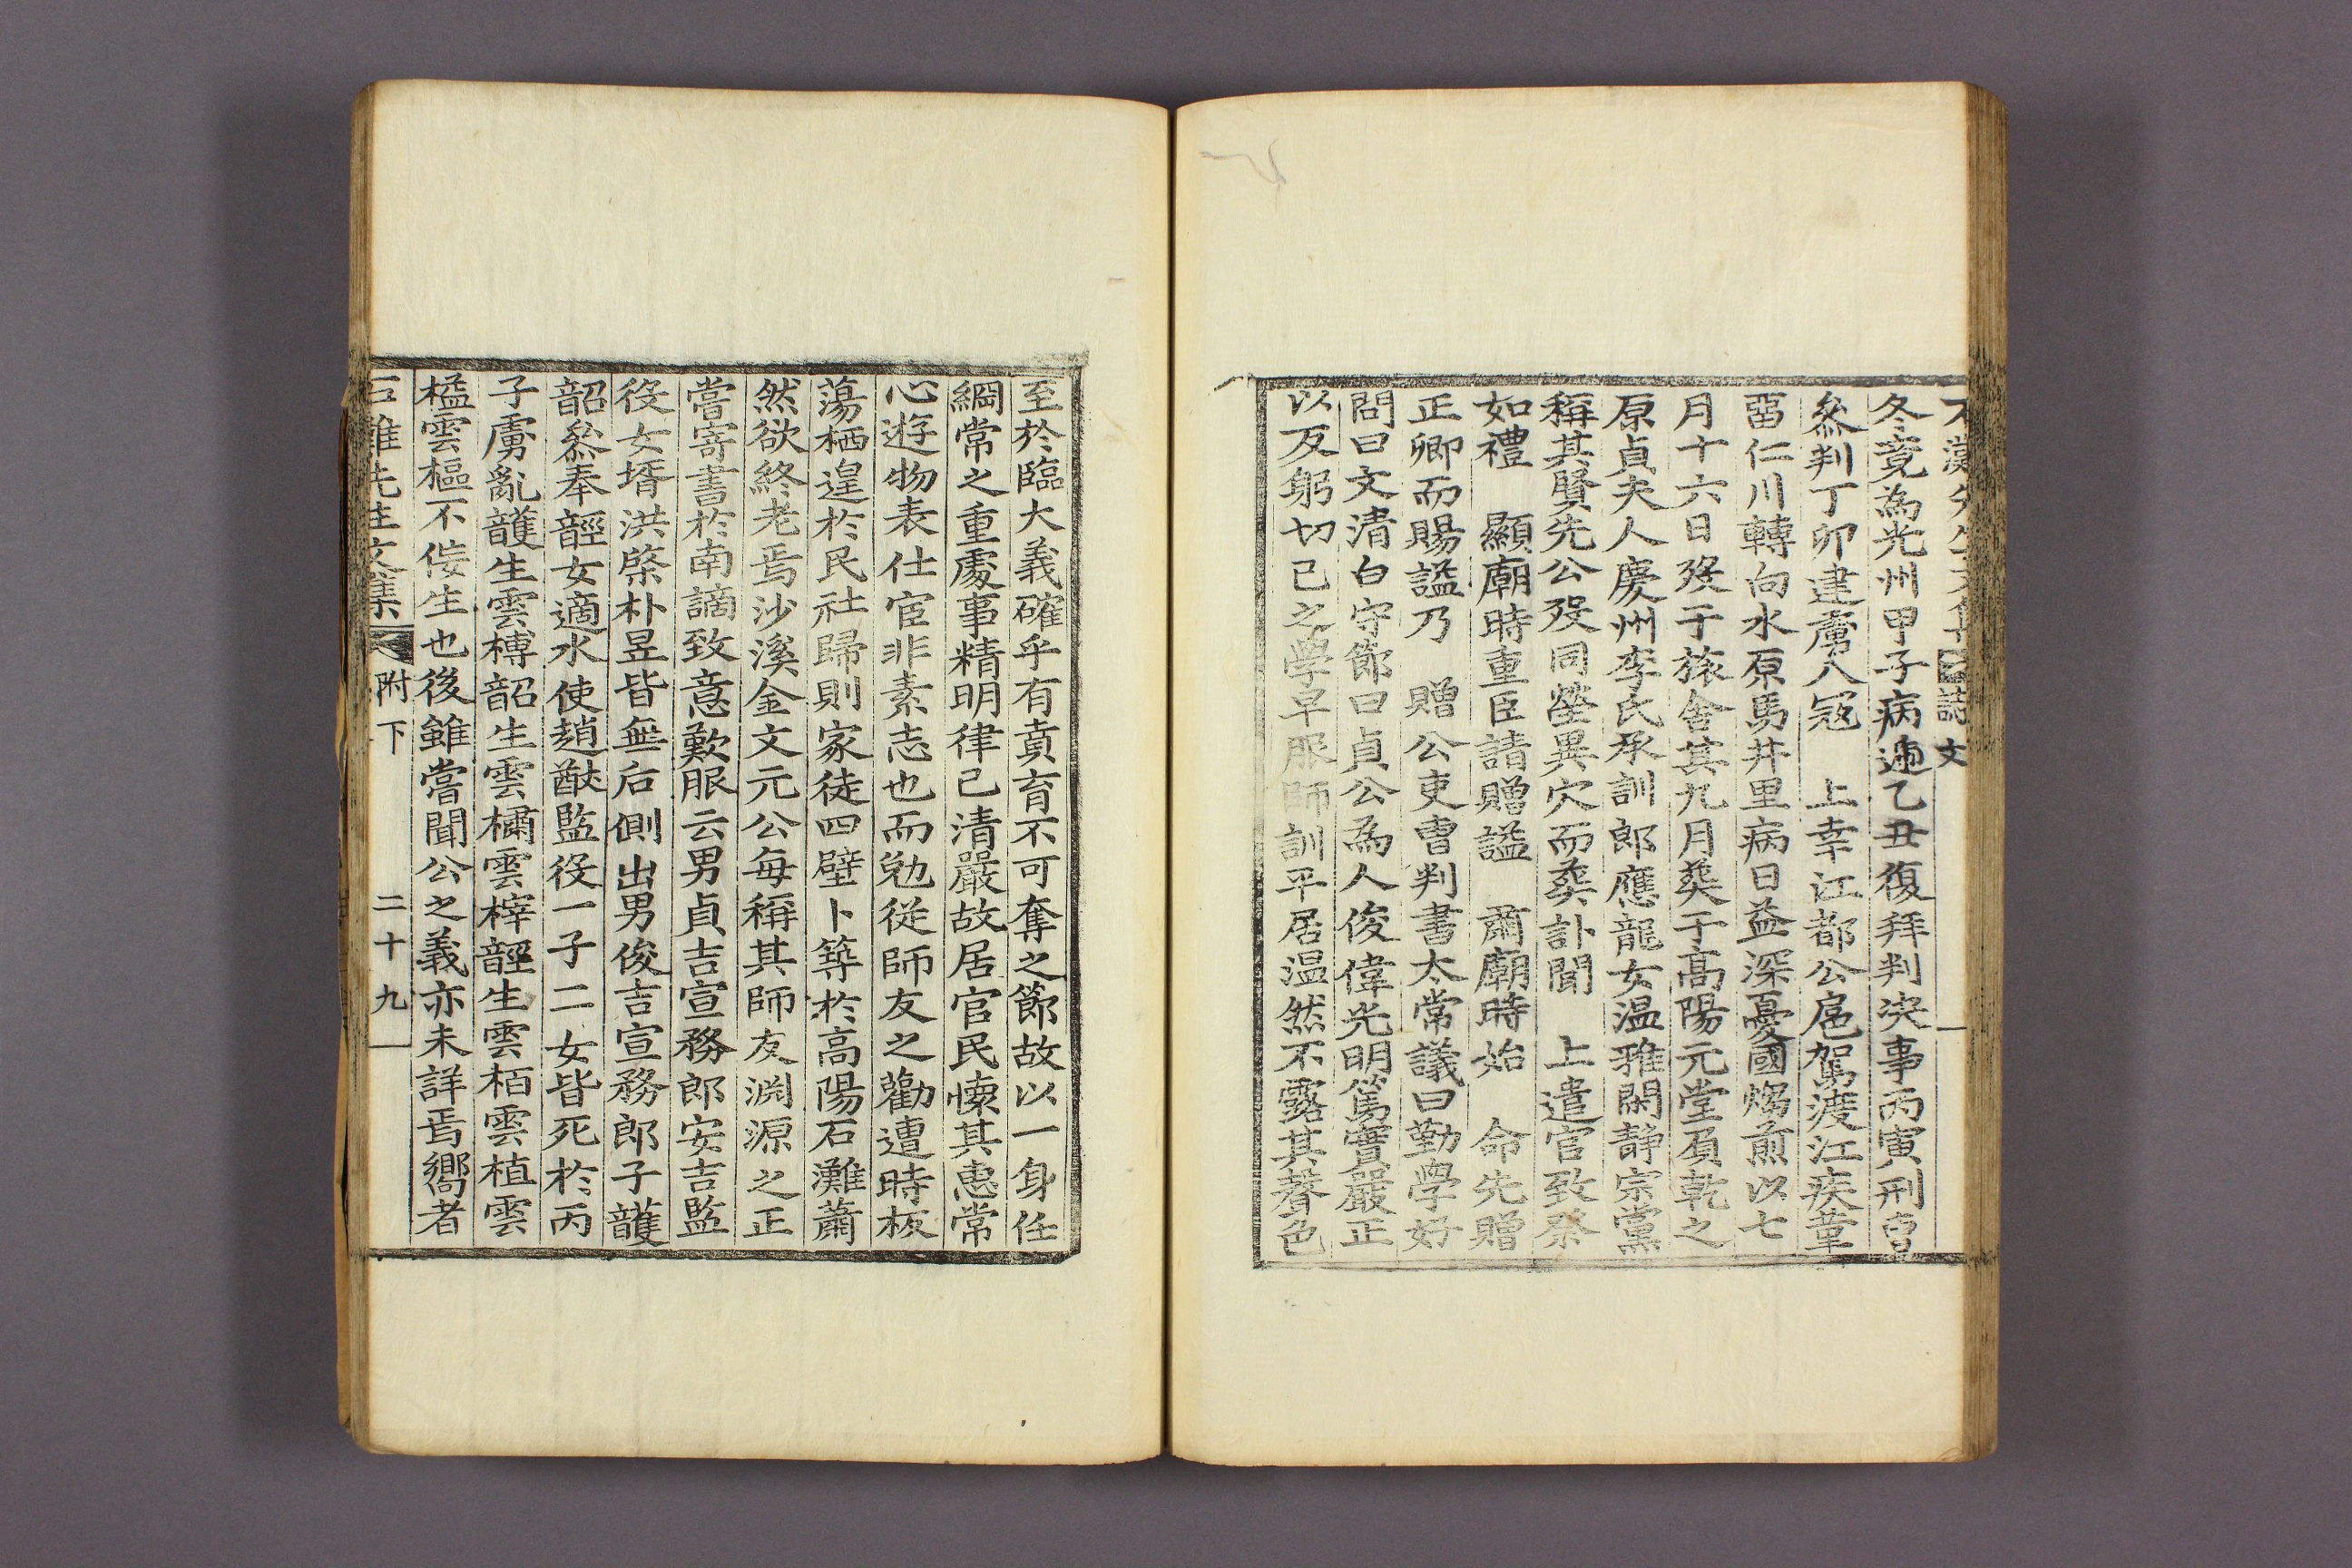 石灘先生文集 誌文
冬竟為光州甲子病遞乙丑復拜判决事丙寅刑曹
叅判丁卯建虜入冦 上幸江都公扈駕渡江疾革
畱仁川轉向水原馬井里病日益深憂國煼煎以七
月十六日殁于旅舍其九月葬于高陽元堂負乾之
原貞夫人慶州李氏承訓郎應龍女温雅閑静宗黨
稱其賢先公殁同塋異穴而葬訃聞 上遣官致祭
如禮 顯廟時重臣請贈諡 肅廟時始 命先贈
正卿而賜諡乃 贈公吏曹判書太常議曰勤學好
問曰文清白守節曰貞公為人俊偉光明篤實嚴正
以反躬切己之學早服師訓平居温然不露其聲色
至於臨大義確乎有賁育不可奪之節故以一身任
綱常之重處事精明律己清嚴故居官民懷其惠常
心遊物表仕宦非素志也而勉從師友之勸遭時板
蕩栖遑於民社歸則家徒四壁卜築於高陽石灘蕭
然欲終老焉沙溪金文元公每稱其師友淵源之正
嘗寄書於南謫致意歎服云男貞吉宣務郎安吉監
役女壻洪棨朴昱皆無后側出男俊吉宣務郎子頀
韶叅奉䪫女適水使趙猷監役一子二女皆死於丙
子虜亂頀生雲榑韶生雲橚雲榟䪫生雲栢雲植雲
橀雲樞不佞生也後雖嘗聞公之義亦未詳焉嚮者
石灘先生文集 附下 二十九